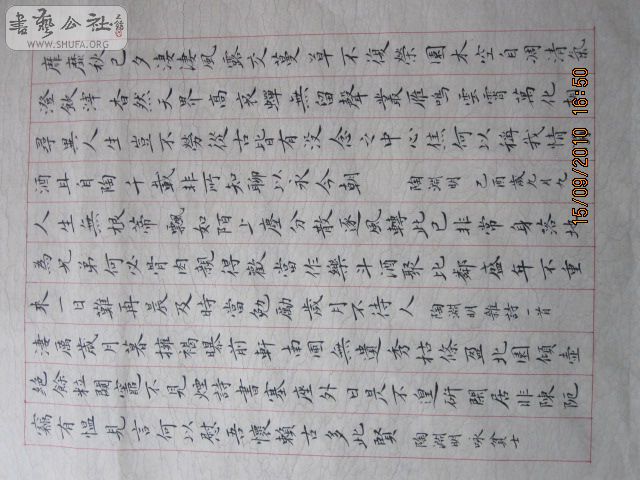 書藝公社
WWW.SHUFA.ORG
靡靡秋已夕淒淒風露交蔓草不復榮園木空自凋清氣
澄餘滓杳然天界高哀蟬無留聲叢雁鳴雲霄萬化
尋異人生豈不勞從古皆有没念之中心焦何以稱我情
酒且自陶千載非所知聊以永今朝 陶淵明 己酉歲九月九
人生無根蒂飄如陌上塵分散逐風轉此已非常身落地
為兄弟何必骨肉親得歡當作樂斗酒聚比鄰盛年不重
來一日難再晨及時當勉勵歲月不待人 陶淵明 雜詩一首
淒厲歲月暮擁褐曝前軒南圃無遺秀枯條盈北園傾壺
絕餘粒闚竈不見煙詩書塞座外日昃不遑研閑居非陳阨
竊有慍見言何以慰吾懷賴古多此賢 陶淵明 咏貧士
15/09/2010 16:50